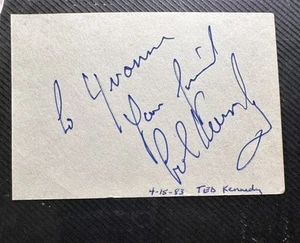 To Yvonne
Your friend
Ted Kennedy
4-15-83 TED Kennedy